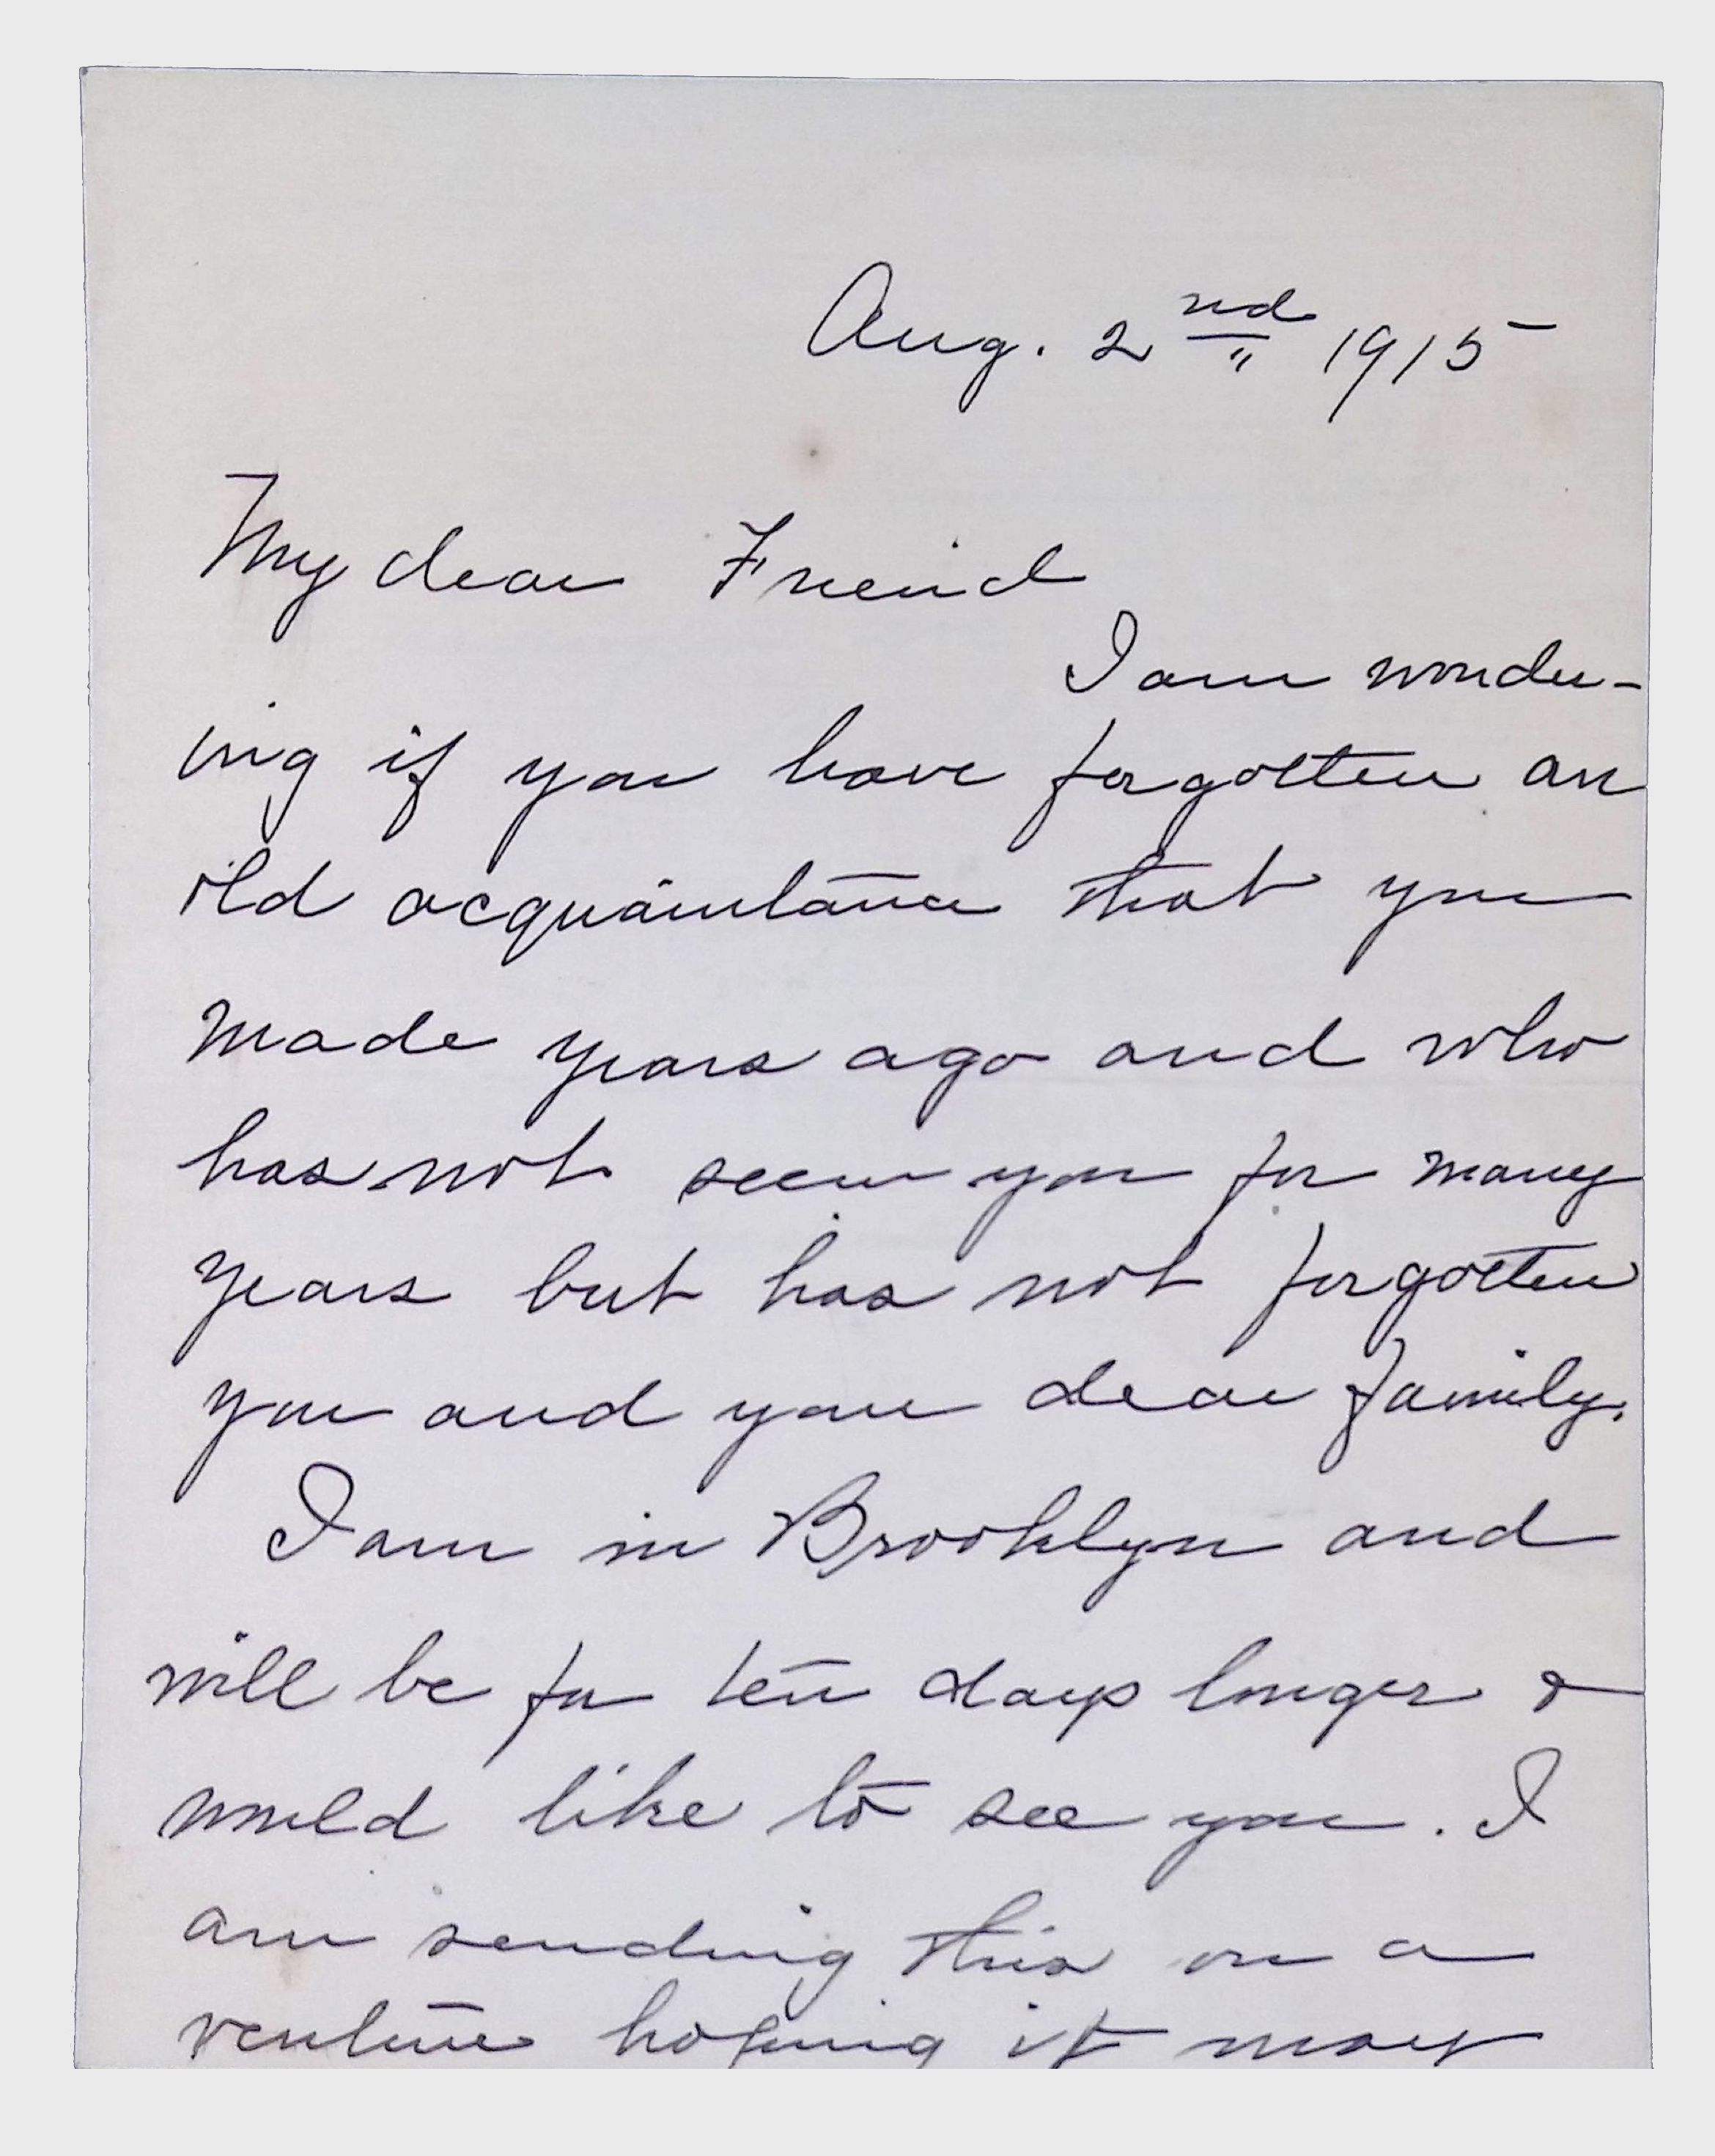 Aug. 2nd 1915
My dear Friend
I am wonder-
ing if you have forgotten an
old acquaintance that you
made years ago and who
has not seen you for many
years but has not forgotten
you and your dear family.
I am in Brooklyn and
will be for ten days longer &
would like to see you. I
am sending this on a
venture hoping it may